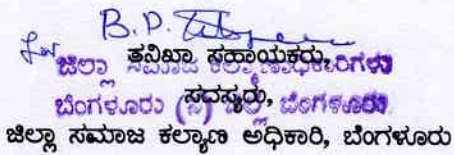 B.D.
for ತನಿಖಾ ಸಹಾಯಕರು,
ಜಿಲ್ಲಾ ಸಮಾಜ ಕಲ್ಯಾಣಾಧಿಕಾರಿಗಳು
ಸದಸ್ಯರು,
ಬೆಂಗಳೂರು ಜಿಲ್ಲೆ, ಬೆಂಗಳೂರು
ಜಿಲ್ಲಾ ಸಮಾಜ ಕಲ್ಯಾಣ ಅಧಿಕಾರಿ, ಬೆಂಗಳೂರು